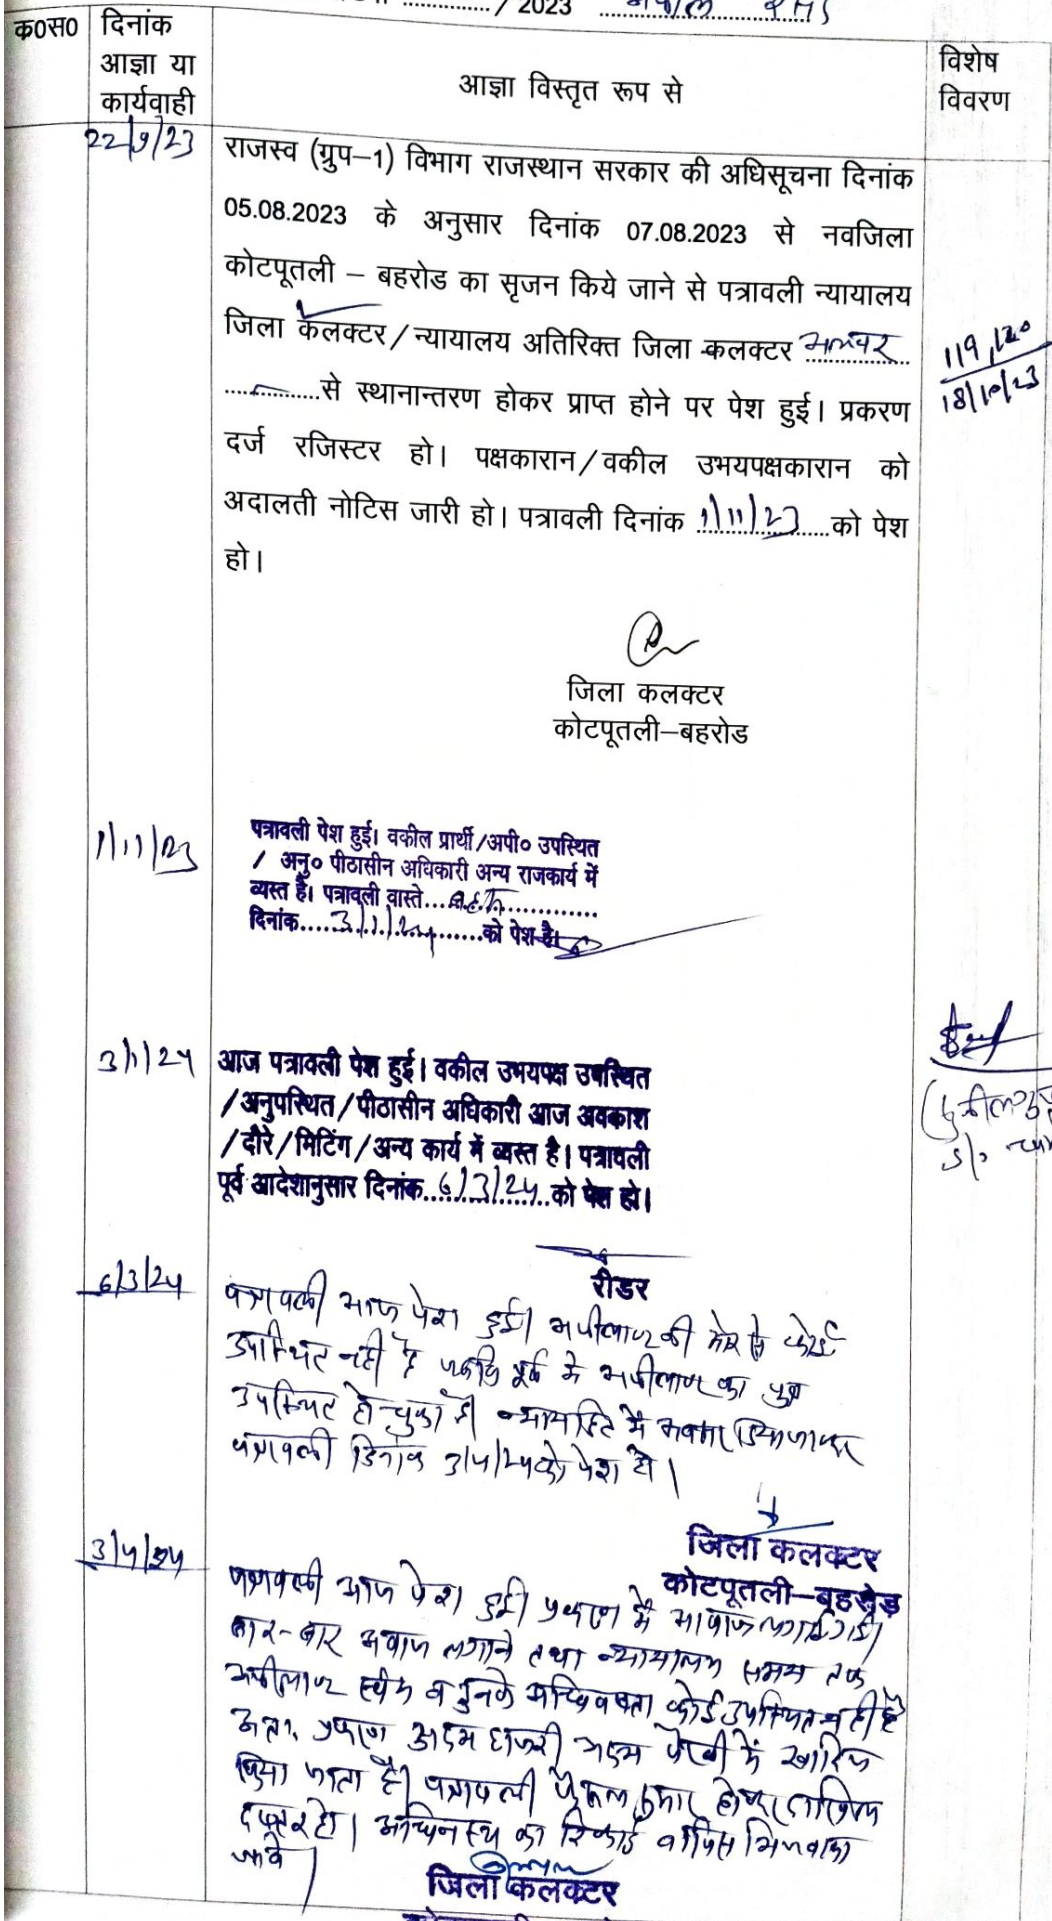 / 2023 अपील
क०स० दिनांक आज्ञा या कार्यवाही
आज्ञा विस्तृत रूप से
विशेष विवरण
22/9/23
राजस्व (ग्रुप–1) विभाग राजस्थान सरकार की अधिसूचना दिनांक
05.08.2023 के अनुसार दिनांक 07.08.2023 से नवजिला
कोटपूतली – बहरोड का सृजन किये जाने से पत्रावली न्यायालय
जिला कलक्टर/न्यायालय अतिरिक्त जिला कलक्टर अलवर
..............से स्थानान्तरण होकर प्राप्त होने पर पेश हुई। प्रकरण
दर्ज रजिस्टर हो। पक्षकारान/वकील उभयपक्षकारान को
अदालती नोटिस जारी हो। पत्रावली दिनांक 1/11/23 को पेश
हो।
119, 120
18/10/23
जिला कलक्टर
कोटपूतली–बहरोड
1/11/23
पत्रावली पेश हुई। वकील प्रार्थी/अपी० उपस्थित
/ अनु० पीठासीन अधिकारी अन्य राजकार्य में
व्यस्त है। पत्रावली वास्ते...बहस............
दिनांक.....3/1/24.......को पेश है।
3/1/24
आज पत्रावली पेश हुई। वकील उभयपक्ष उपस्थित
/अनुपस्थित/पीठासीन अधिकारी आज अवकाश
/दौरे/मिटिंग/अन्य कार्य में व्यस्त है। पत्रावली
पूर्व आदेशानुसार दिनांक..6/3/24..को पेश हो।
रीडर
6/3/24
पत्रावली आज पेश हुई। अपीलाण्ट की ओर से कोई
उपस्थित नहीं है जबकि पूर्व में अपीलाण्ट का पुत्र
उपस्थित हो चुका है। न्यायहित में अवसर दिया जाकर
पत्रावली दिनांक 3/4/24 को पेश हो।
जिला कलक्टर
कोटपूतली–बहरोड़
3/4/24
पत्रावली आज पेश हुई। प्रकरण में आवाज लगाई गई।
बार-बार अवाज लगाने तथा न्यायालय समय तक
अपीलाण्ट स्वंय व उनके अधिवक्ता कोई उपस्थित नहीं है
अतः प्रकरण अदम हाजरी अदम पैरवी में खारिज
किया जाता है। पत्रावली फैसल शुमार होकर दाखिल
दफ्तर हो। अधिनस्थ का रिकार्ड वापिस भिजवाया
जावे।
जिला कलक्टर